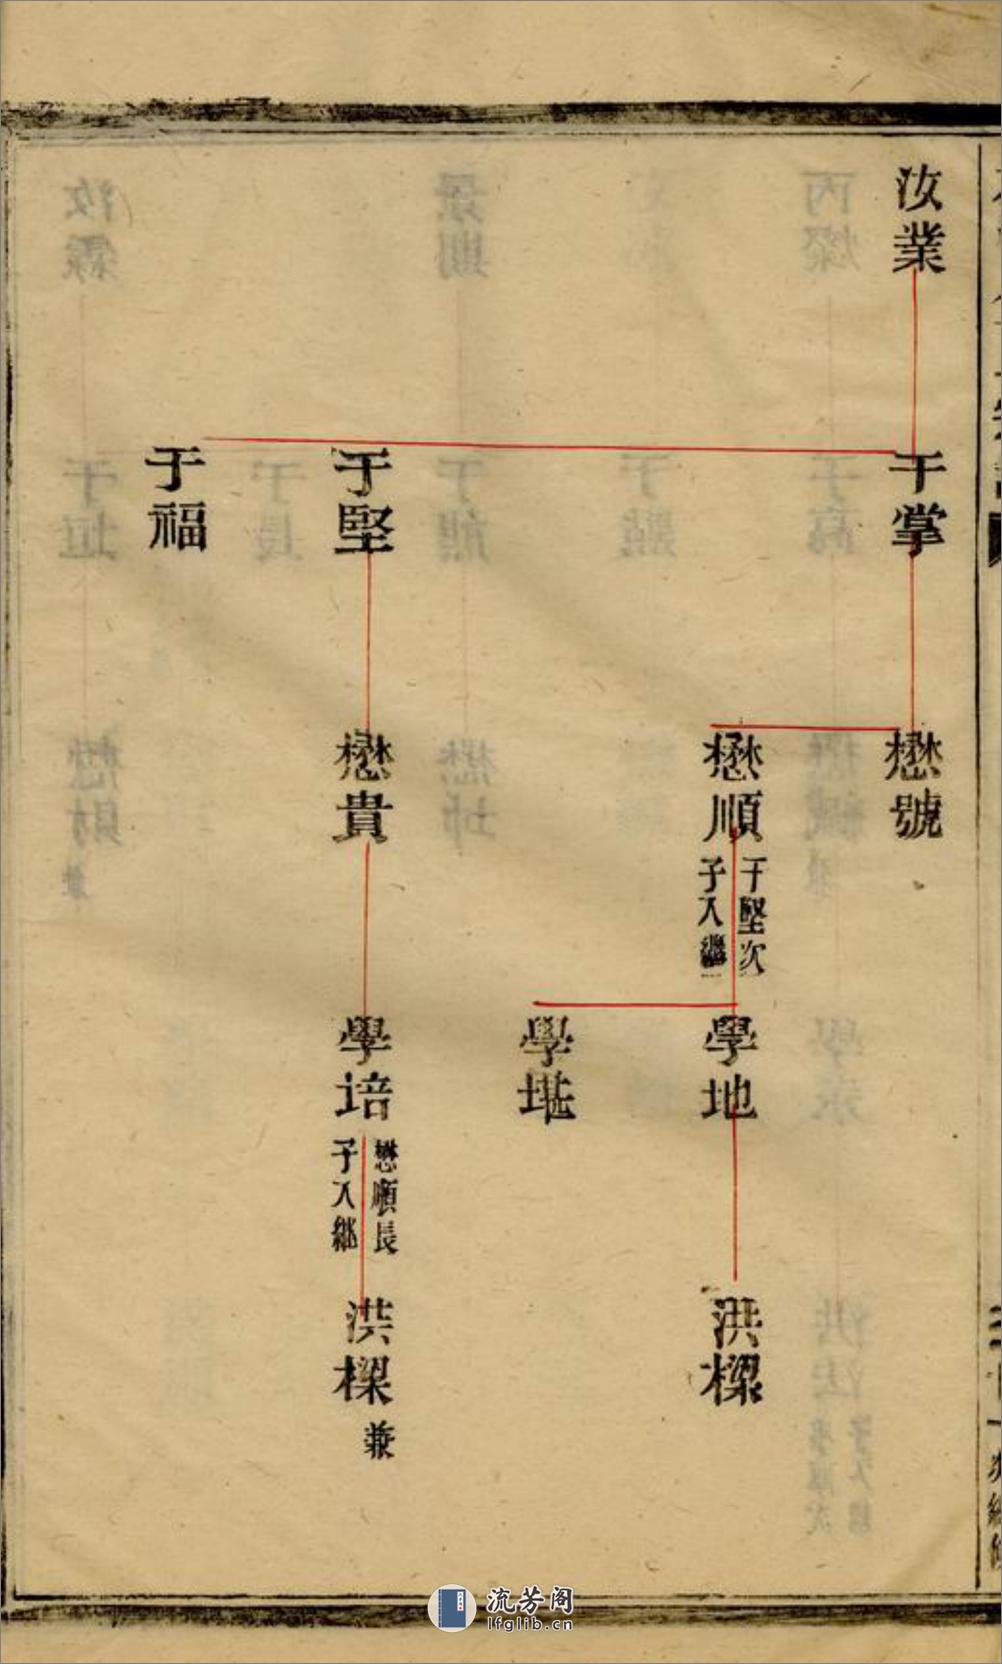 汝業
于掌
于堅
于福
懋號
懋順
于堅次
子入繼
懋貴
學地
學堪
學培
懋順長
子入継
洪樑
洪樑
兼
流芳阁
lfglib.cn